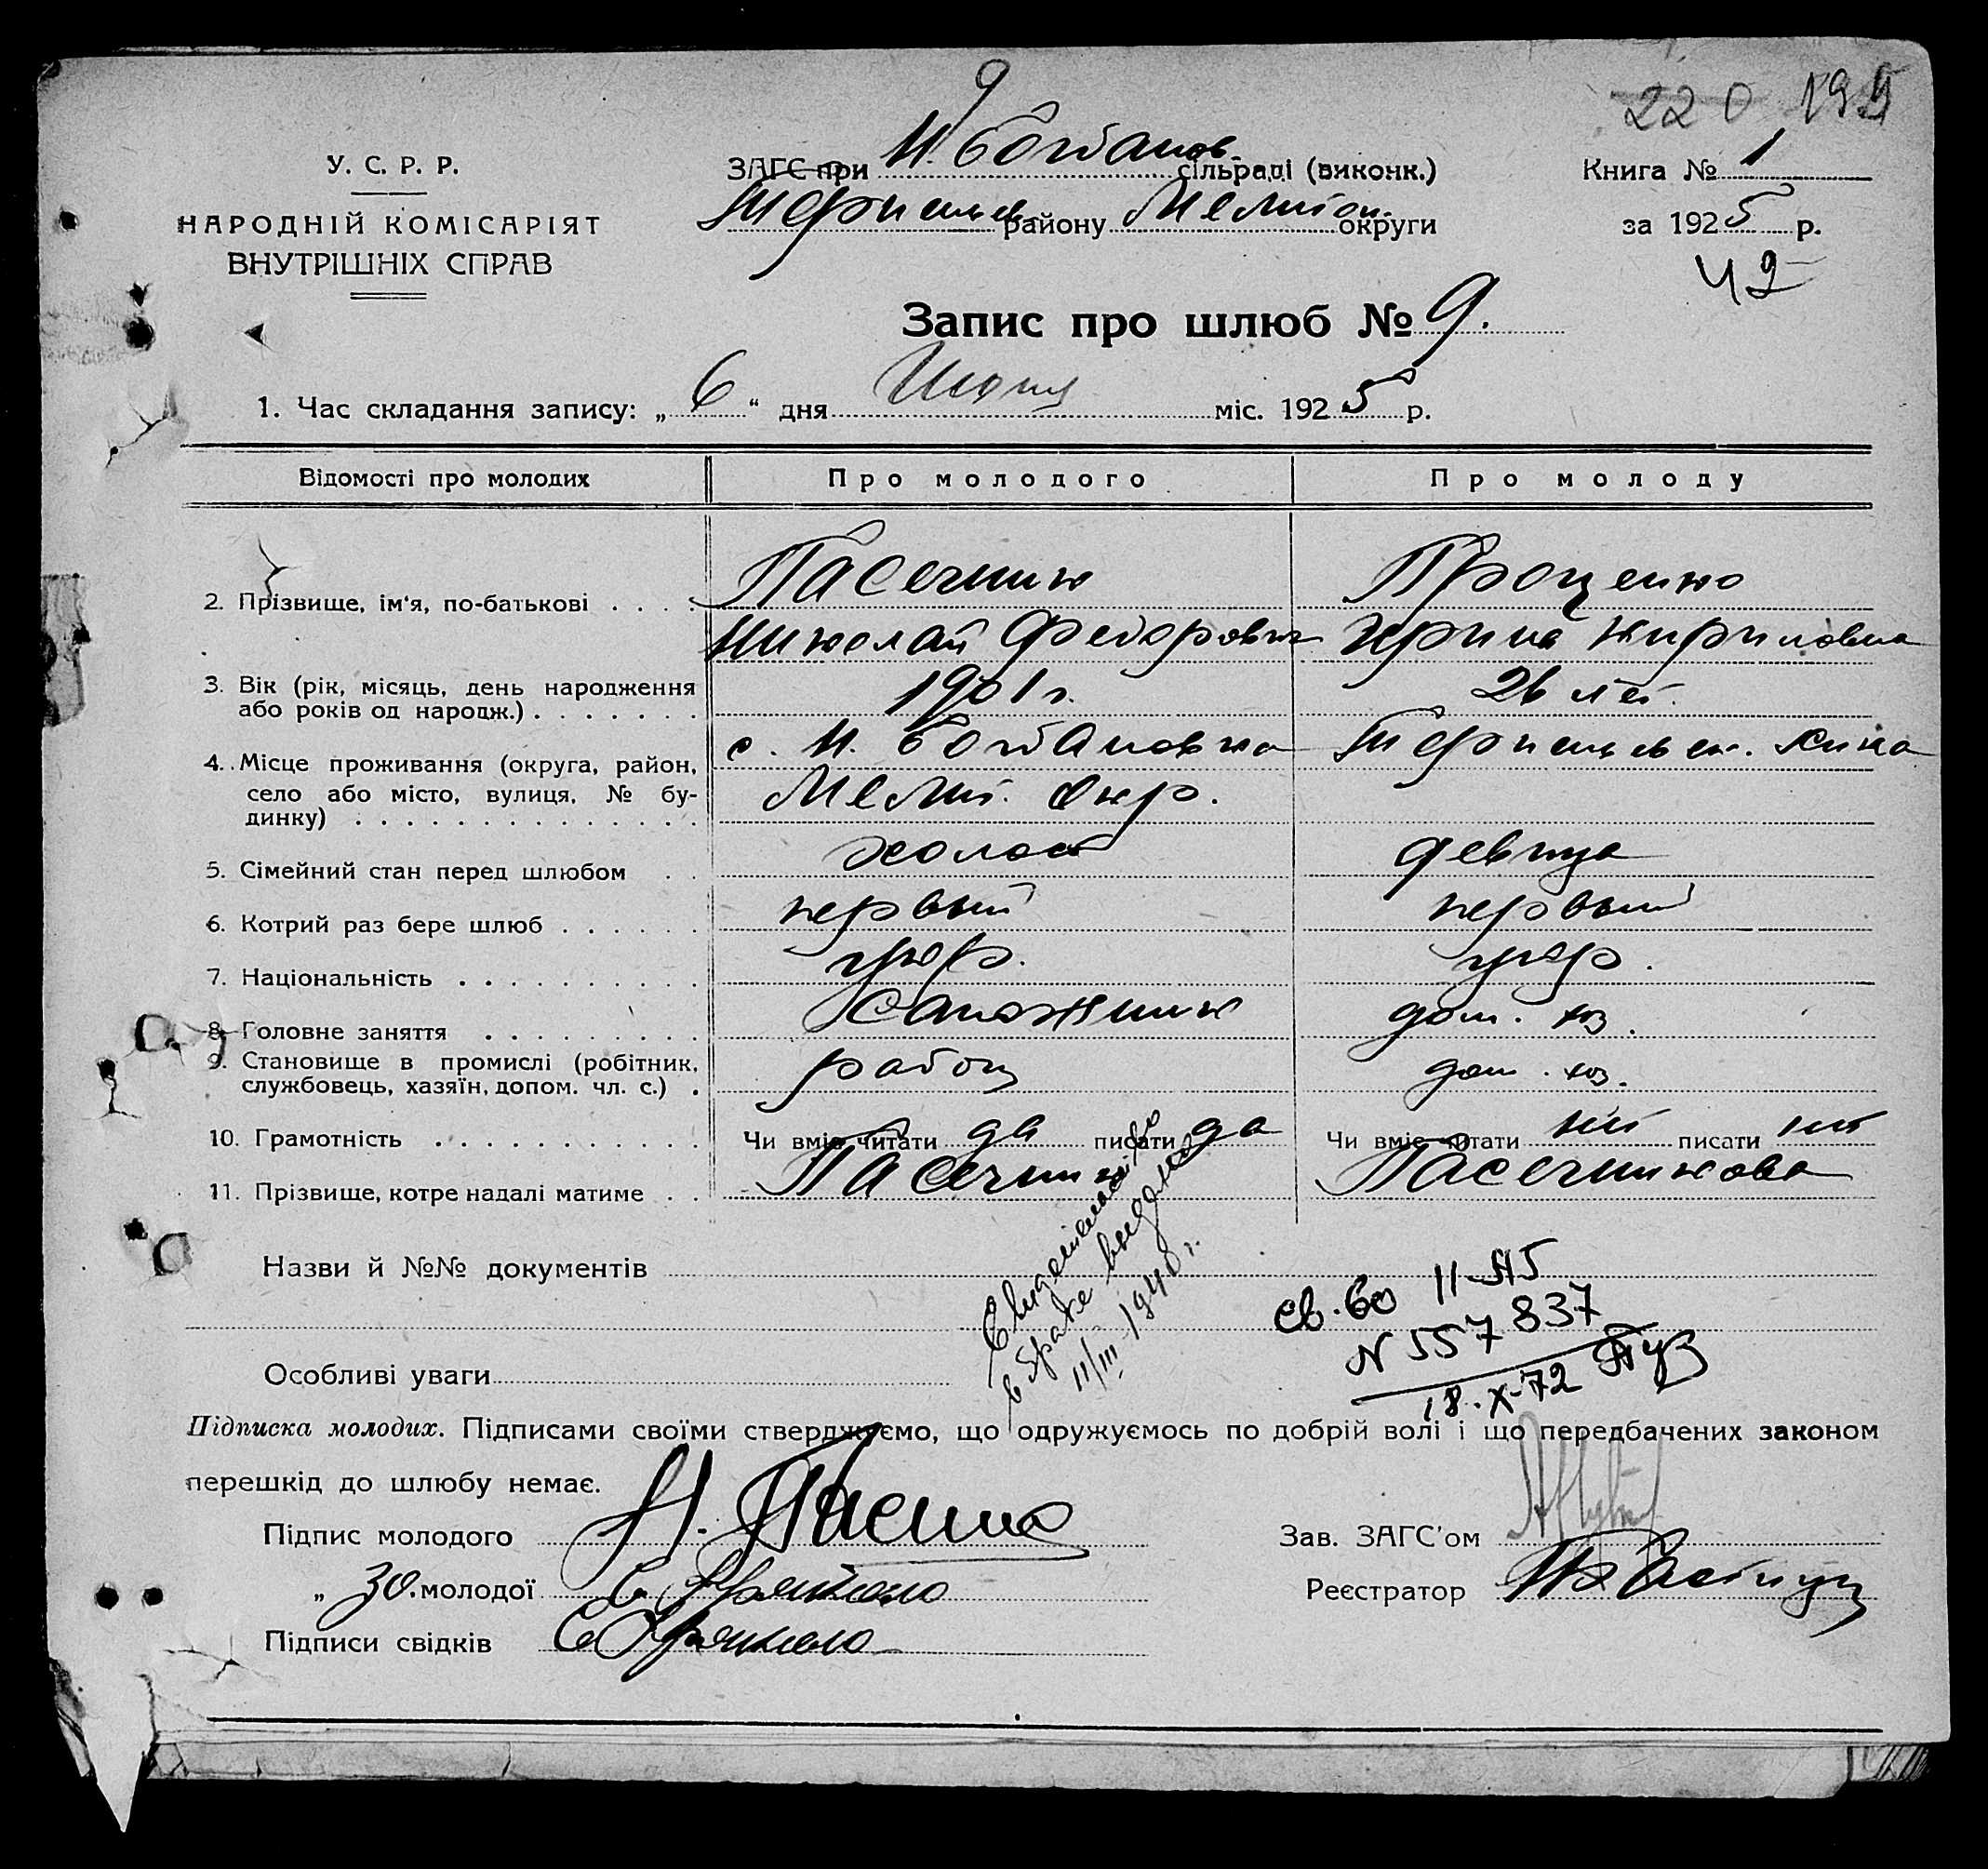 9
220 195
У. С. Р. Р.
НАРОДНІЙ КОМІСАРІЯТ
ВНУТРІШНІХ СПРАВ
ЗАГС при Н. Богданов. сільраді (виконк.)
Терпеньев. району Мелитоп. округи
Книга № 1
за 1925 р.
42
Запис про шлюб № 9.
1. Час складання запису: „ 6 “ дня Июня міс. 1925 р.
Відомості про молодих Про молодого Про молоду
2. Прізвище, ім'я, по-батькові . . . . Пасечник Проценко
Николай Федорович Ирина Кириловна
3. Вік (рік, місяць, день народження
або років од народж.) . . . . . . . 1901 г. 26 лет.
4. Місце проживання (округа, район,
село або місто, вулиця, № бу-
динку) . . . . . . . . . . . . . .
с. Н. Богдановка
Мелит. Окр.
5. Сімейний стан перед шлюбом . . холост девица
6. Котрий раз бере шлюб . . . . . . первый первый
7. Національність . . . . . . . . . . укр. укр.
8. Головне заняття . . . . . . . . . Сапожник дом. хоз.
9. Становище в промислі (робітник,
службовець, хазяїн, допом. чл. с.) . работ дом. хоз.
10. Грамотність . . . . . . . . . . . Чи вміє читати да писати да Чи вміє читати нет писати нет
11. Прізвище, котре надалі матиме . . Пасечник Пасечникова
Назви й №№ документів
Свидетельство
о браке выдано
11/III-1940 г.
св.во II-ЯБ
N 557837
18.X-72
Особливі уваги
Підписка молодих. Підписами своїми стверджуємо, що одружуємось по добрій волі і що передбачених законом
перешкід до шлюбу немає.
Підпис молодого Н. Пасечник
„ за молодої
Підписи свідків
Зав. ЗАГС'ом
Реєстратор